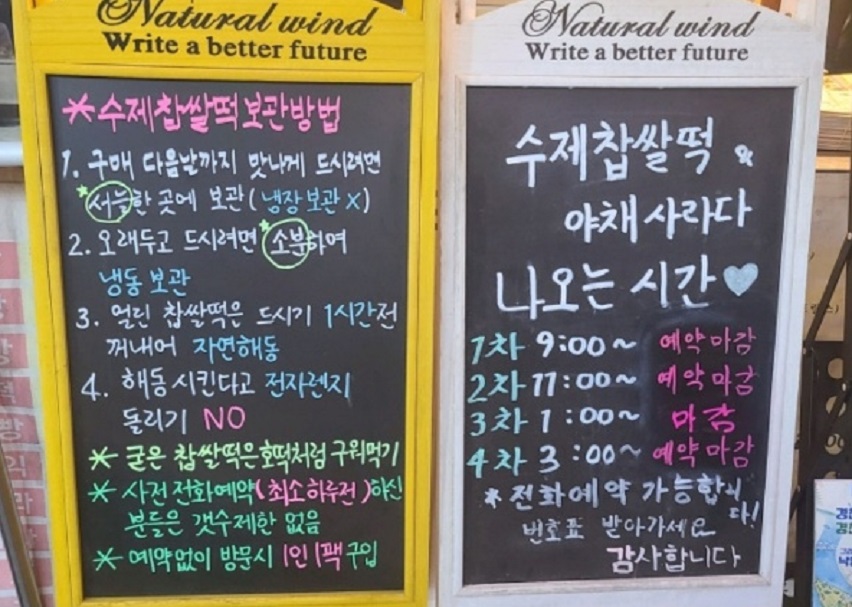 Natural wind
Write a better future
*수제찹쌀떡 보관방법
1. 구매 다음날까지 맛나게 드시려면
*서늘한 곳에 보관(냉장보관X)
2. 오래두고 드시려면 *소분하여
냉동 보관
3. 얼린 찹쌀떡은 드시기 1시간전
꺼내어 자연해동
4. 해동시킨다고 전자렌지
돌리기 NO
* 굳은 찹쌀떡은 호떡처럼 구워먹기
* 사전전화예약(최소하루전)하신
분들은 갯수제한 없음
* 예약없이 방문시 1인 1팩 구입
Natural wind
Write a better future
수제찹쌀떡 &
야채사라다
나오는 시간♥
1차 9:00~ 예약마감
2차 11:00~ 예약마감
3차 1:00~ 마감
4차 3:00~ 예약마감
*전화예약 가능합니다!
번호표 받아가세요
감사합니다